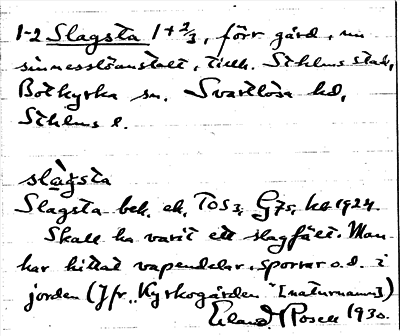 1-2 Slagsta 1+2/3, förr gård, nu
sinnesslöanstalt, tillh. Sthlms stad,
Botkyrka sn. Svartlösa hd,
Sthlms l.
slàgsta
Slagsta bek. ek. TOS 3, G75, ha 1924
Skall ha varit ett slagfält. Man
har hittat vapendelar, sporrar o.d. i
jorden (Jfr „Kyrkogården" [naturnamn])
Erland Rosell 1930.